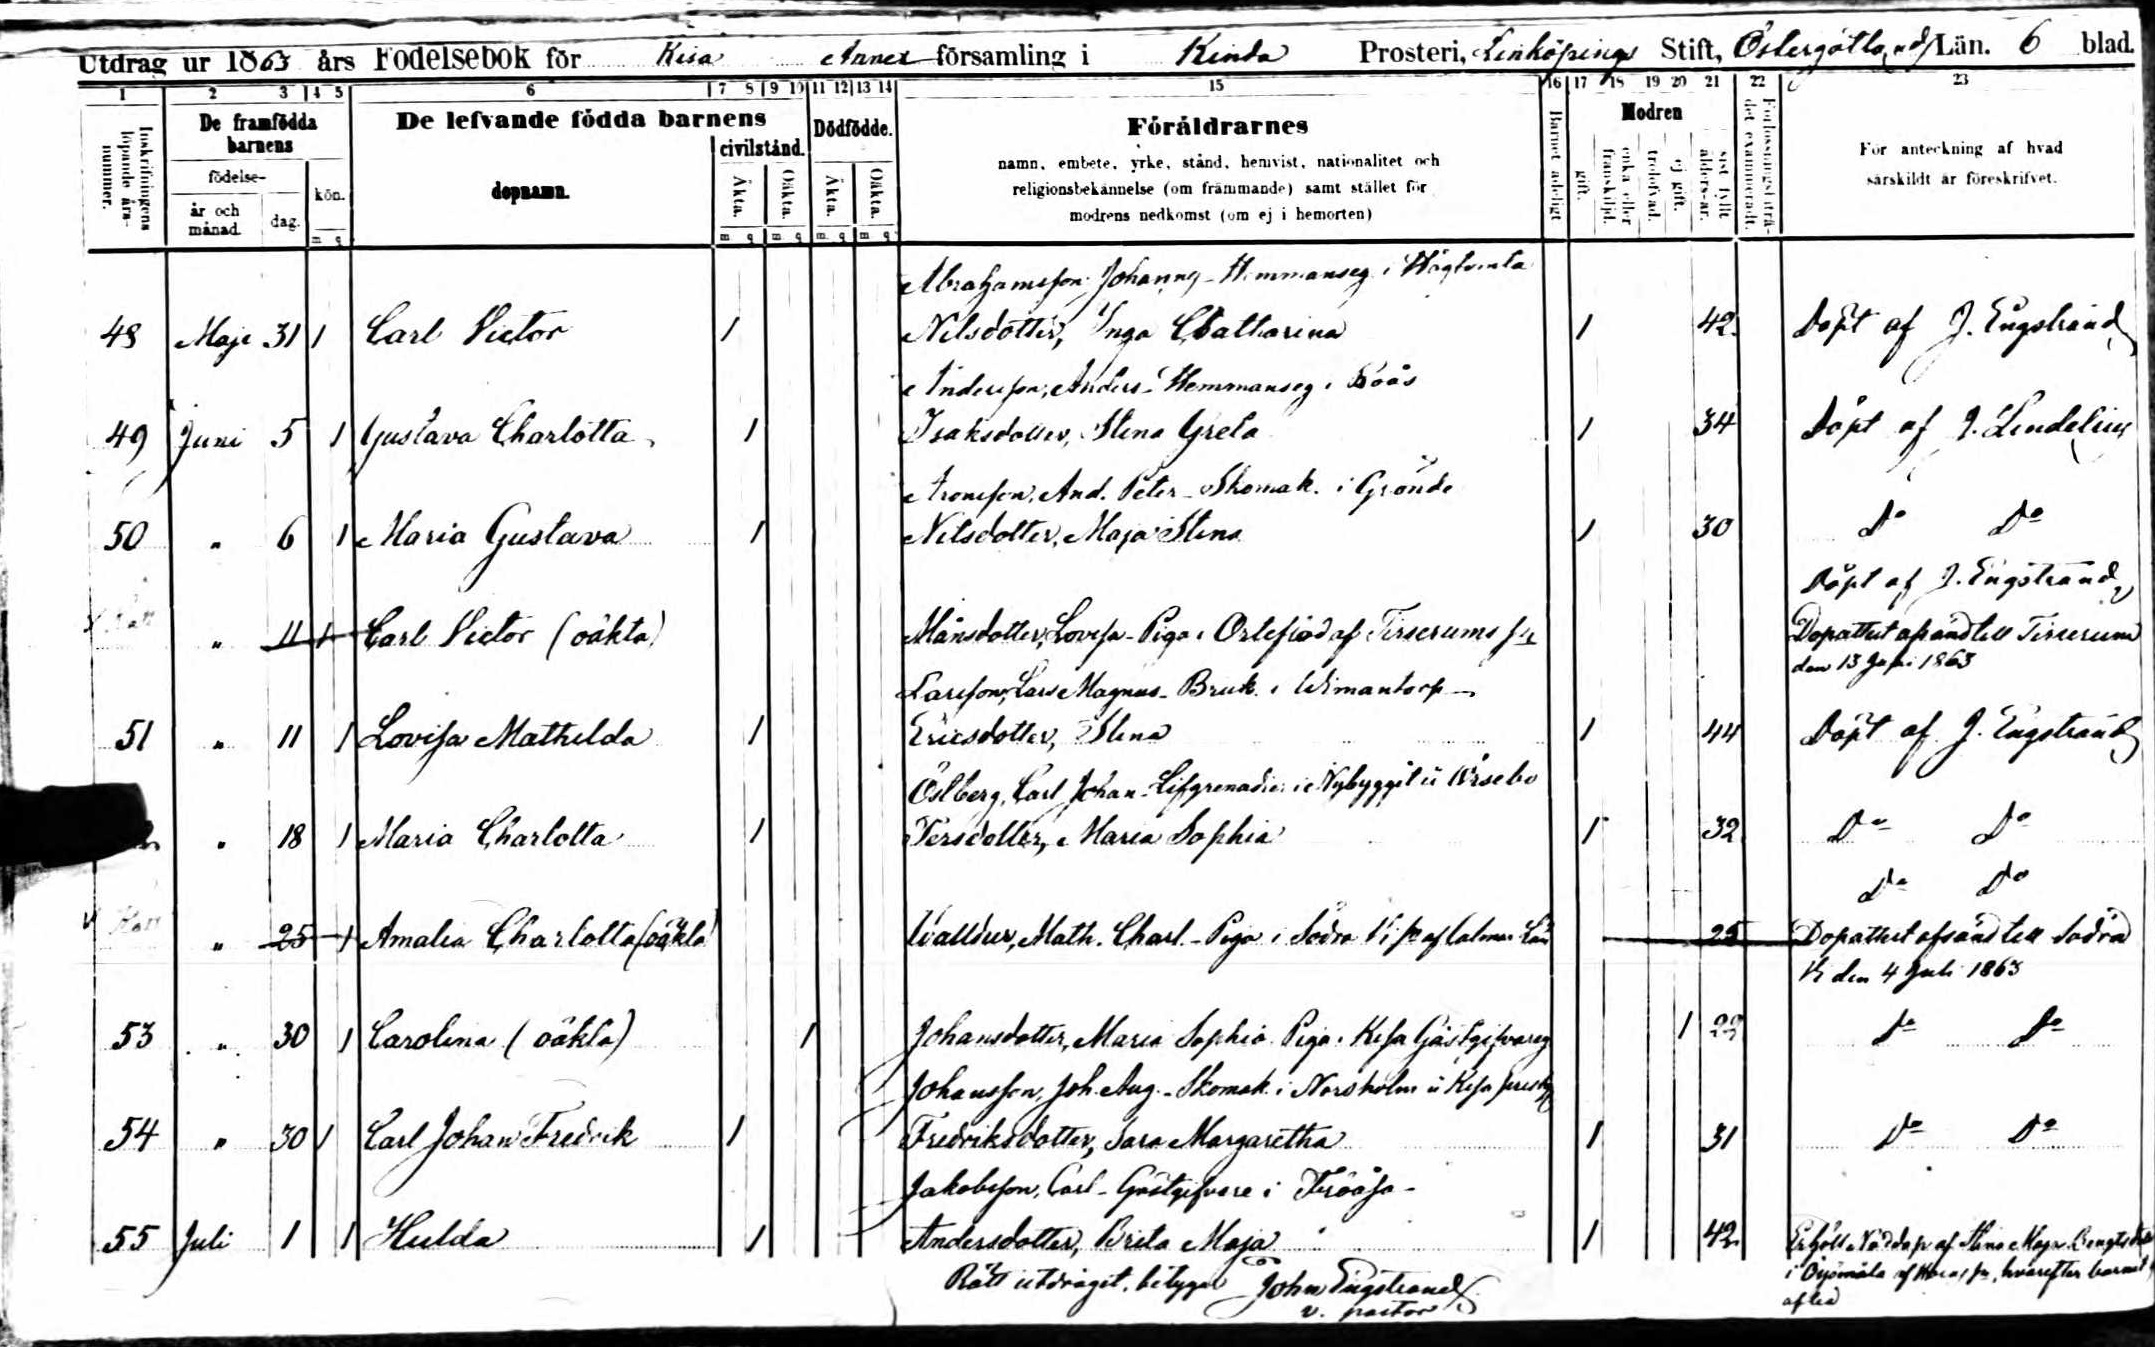 Utdrag ur 1863 års Födelsebok för Kisa Annex församling i Kinda Prosteri, Linköpings Stift, Östergötlands Län. 6 blad.
1 2 3 4 5 6 7 8 9 10 11 12 13 14 15 16 17 18 19 20 21 22 23
Inskrifningens löpande års-nummer.
De framfödda barnens
födelse-
år och månad.
dag.
kön.
m q
De lefvande födda barnens
dopnamn.
civilstånd.
Äkta.
Oäkta.
m q m q
Dödfödde.
Äkta.
Oäkta.
m q m q
Föräldrarnes
namn, embete, yrke, stånd, hemvist, nationalitet och
religionsbekännelse (om främmande) samt stället för
modrens nedkomst (om ej i hemorten)
Barnet adeligt
Modren
gift.
enka eller frånskild.
trolofvad.
ej gift.
sist fyllt ålders-år.
För anteckning af hvad
särskildt är föreskrifvet.
Abrahamsson Johannes - Hemmanseg. i
48 Maje 31 1 Carl Victor 1 Nilsdotter, Inga Catharina 1 42. Döpt af J. Engstrand
Andersson, Anders - Hemmanseg i
49 Juni 5 1 Gustava Charlotta 1 Isaksdotter, Stina Greta 1 34 Döpt af J. Lindelius
Aronsson, And. Peter - Skomak. i Grönde
50 " 6 1 Maria Gustava 1 Nilsdotter, Maja Stina 1 30 Do Do
Döpt af J. Engstrand
" 11 1 Carl Victor (oäkta) Månsdotter, Lovisa - Piga i af Tirserums fg Dopattest afsänd till Tirserum
den 13 Juni 1863
Larsson, Lars Magnus - Bruk. i Wimantorp
51 " 11 1 Lovisa Mathilda 1 Ericsdotter, Stina 1 44 Döpt af J. Engstrand
Östberg, Carl Johan - Lifgrenadier i Nybygget u
" 18 1 Maria Charlotta 1 Persdotter, Maria Sophia 1 32 Do Do
Do Do
" 25 1 Amalia Charlotta (oäkta) Math. Charl. - Piga i Södra Vi fg af Calmar Län 25 Dopattest afsänd till Södra
Vi den 4 Juli 1863
53 " 30 1 Carolina (oäkta) 1 Johansdotter, Maria Sophia Piga i Kisa Gästgifvareg 1 29 Do Do
Johansson, Joh. Aug. - Skomak. i Norsholm u Kisa
54 " 30 1 Carl Johan Fredrik 1 Fredriksdotter, Sara Margaretha 1 31 Do Do
Jakobsson, Carl - Gästgifvare i
55 Juli 1 1 Hulda 1 Andersdotter, Brita Maja 1 42. Erhöll Nöddop af Stina Maja
i af fg, hvarefter barnet
afled
Rätt utdraget, betygar John Engstrand
v. pastor